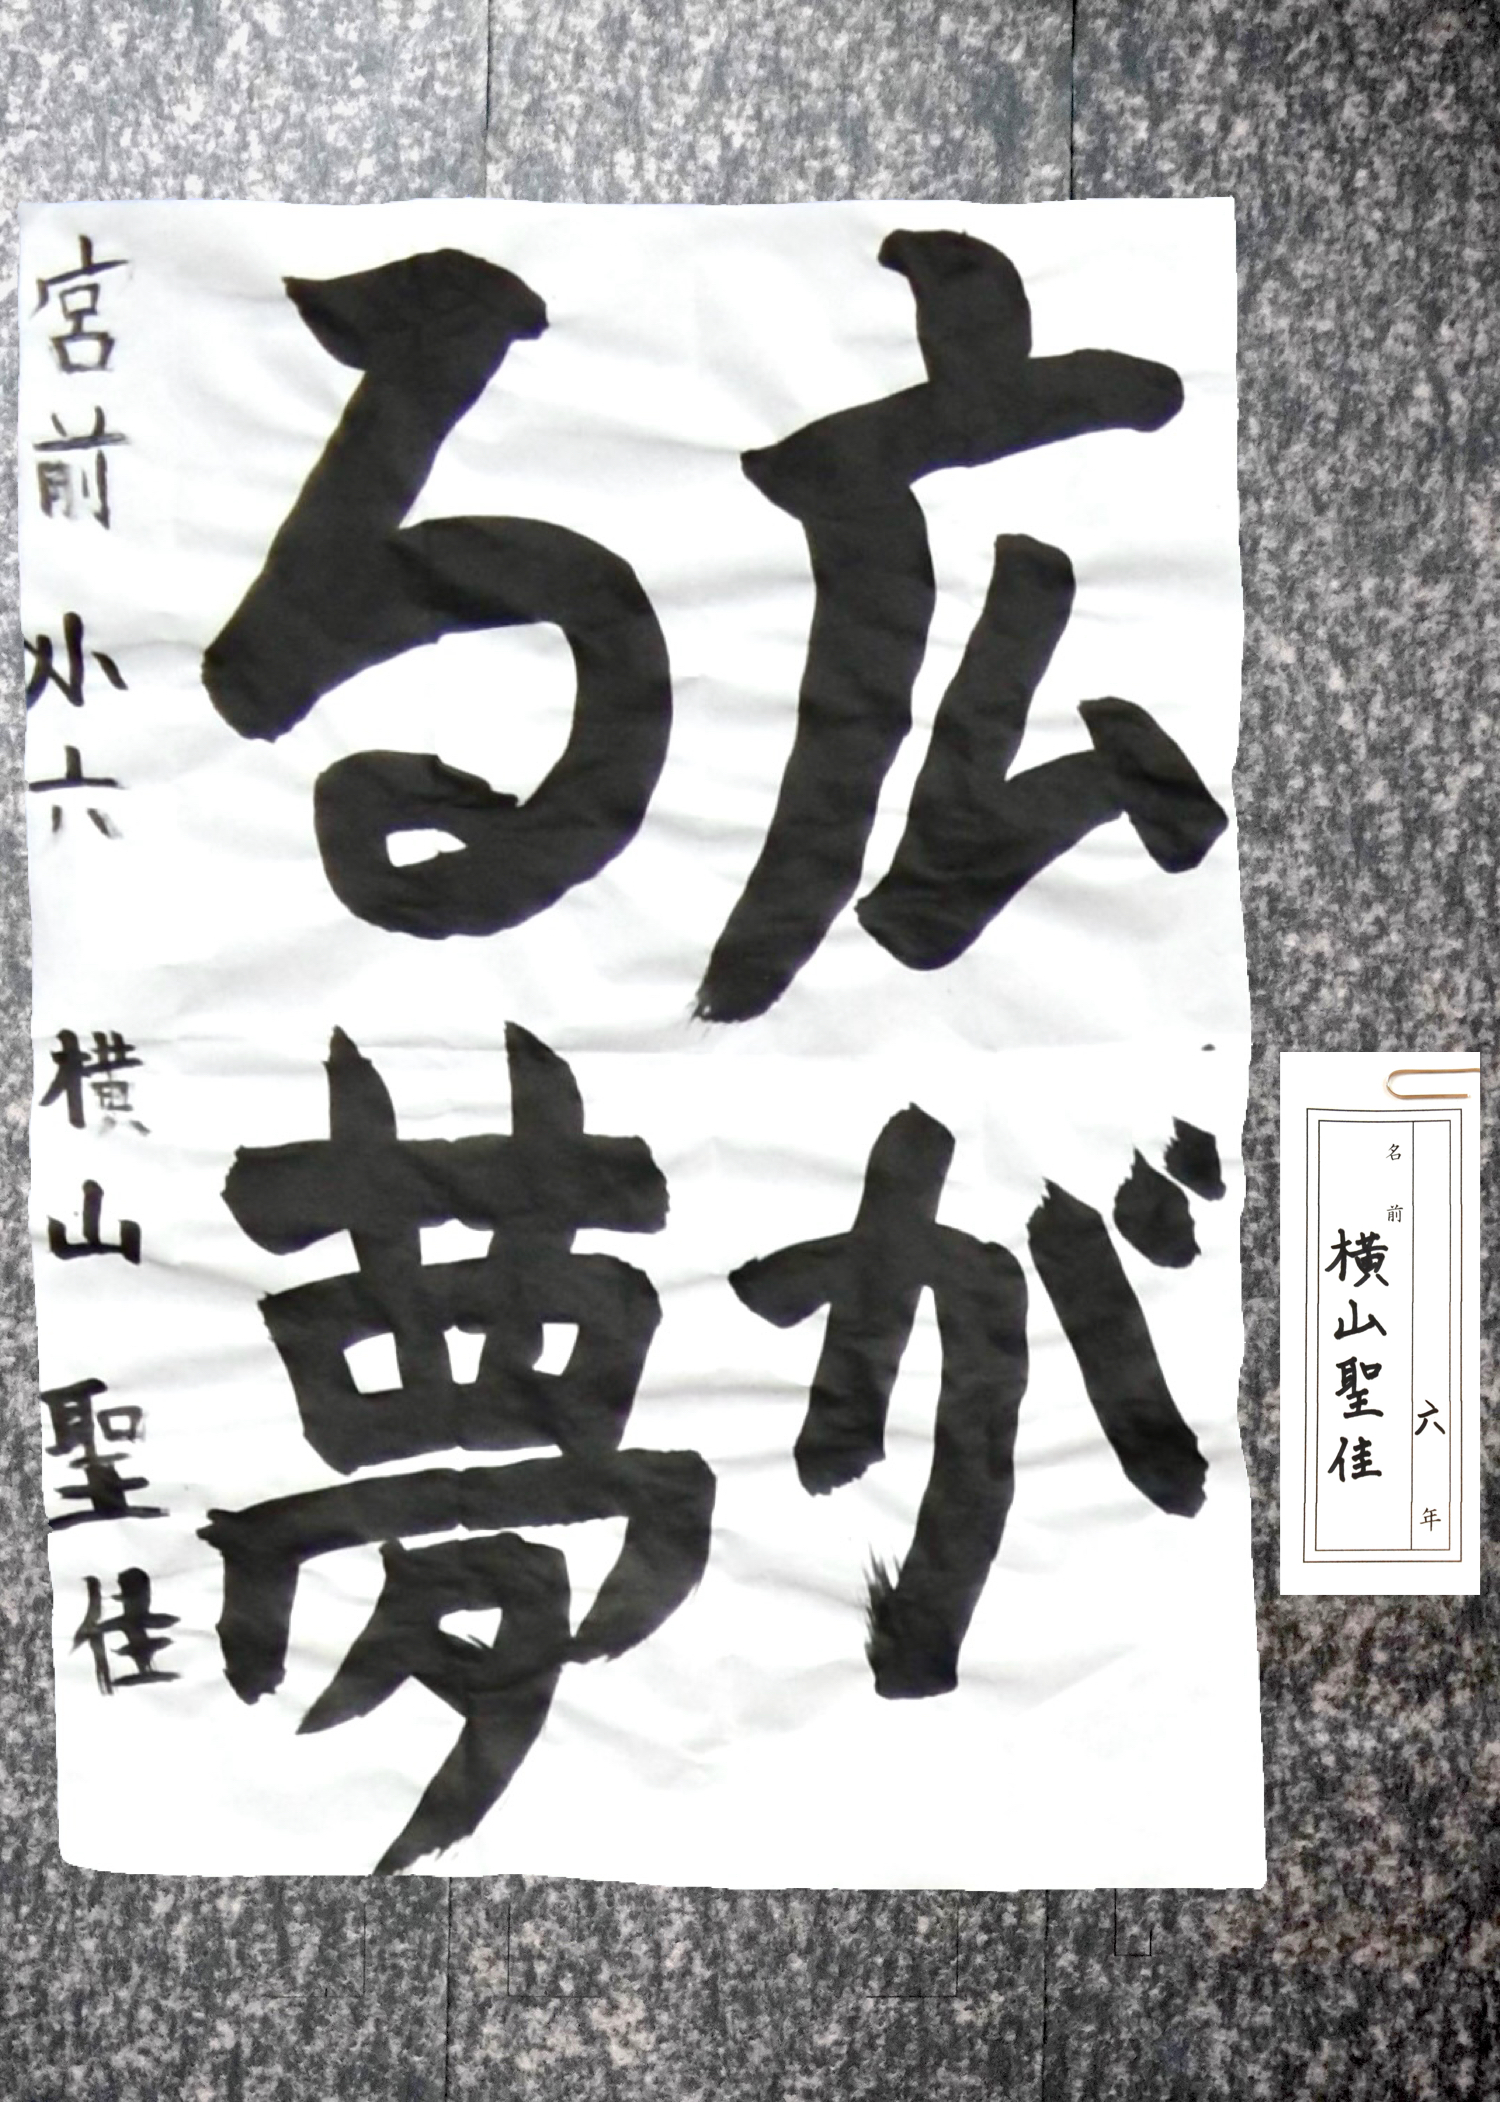 広が
る夢
宮前小六 横山聖佳
六年
名前
横山聖佳